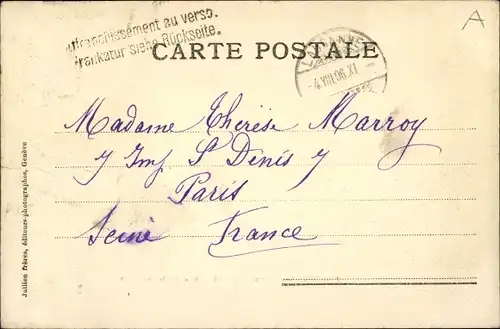 Affranchissement au verso.
Frankatur siehe Rückseite.
CARTE POSTALE
LAUSANNE
-4.VIII.06.XI
A
Madame Thérèse Marroy
7 Imp St Denis 7
Paris
Seine France
Jullien frères, éditeurs-photographes, Genève